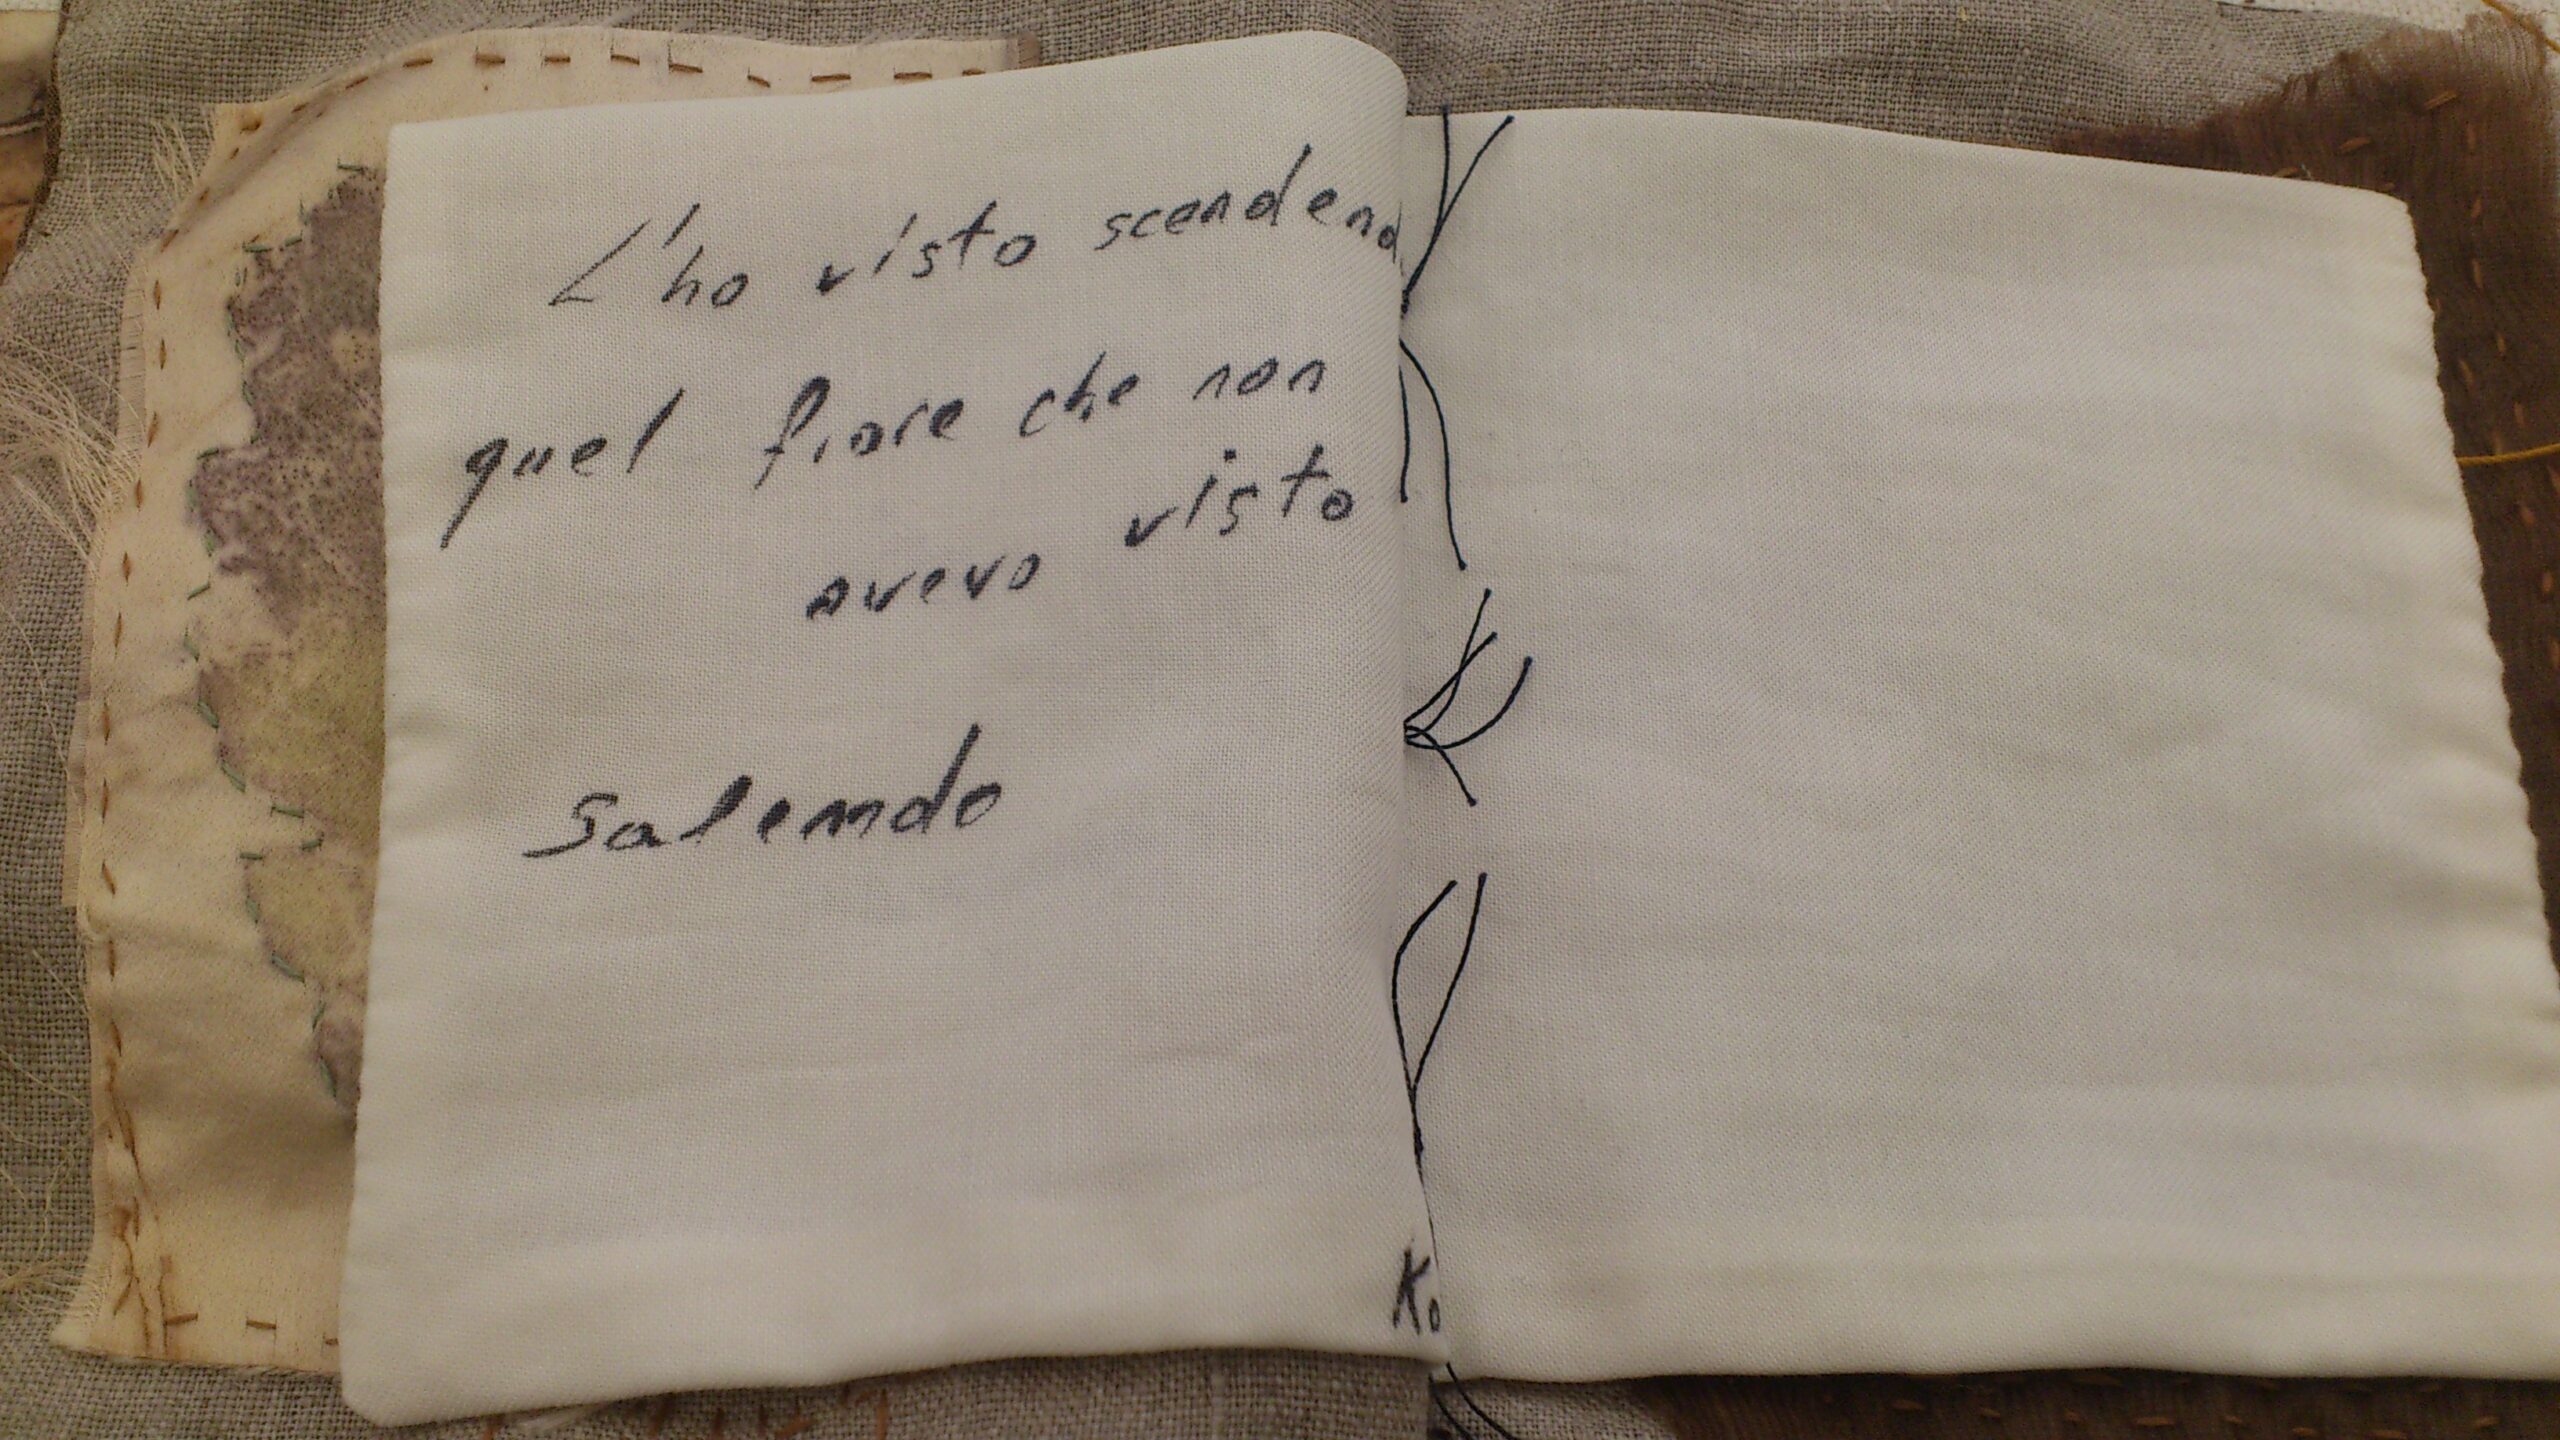 L'ho visto scendend
quel fiore che non
avevo visto
salendo
Ko